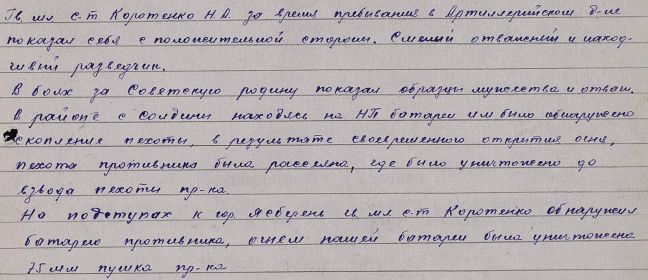 Гв. мл. с-т Коротенко Н.А. за время пребывания в Артиллерийском д-не
показал себя с положительной стороны. Смелый отважный и наход-
чивый разведчик.
В боях за Советскую родину показал образцы мужества и отваги.
В районе с Солдины находясь на НП батареи им было обнаружено
скопление пехоты, в результате своевременного открытия огня,
пехота противника была рассеяна, где было уничтожено до
взвода пехоты пр-ка.
На подступах к гор. Ясберень гв. мл. с-т Коротенко обнаружил
батарею противника, огнем нашей батареи была уничтожена
75 мм пушка пр-ка